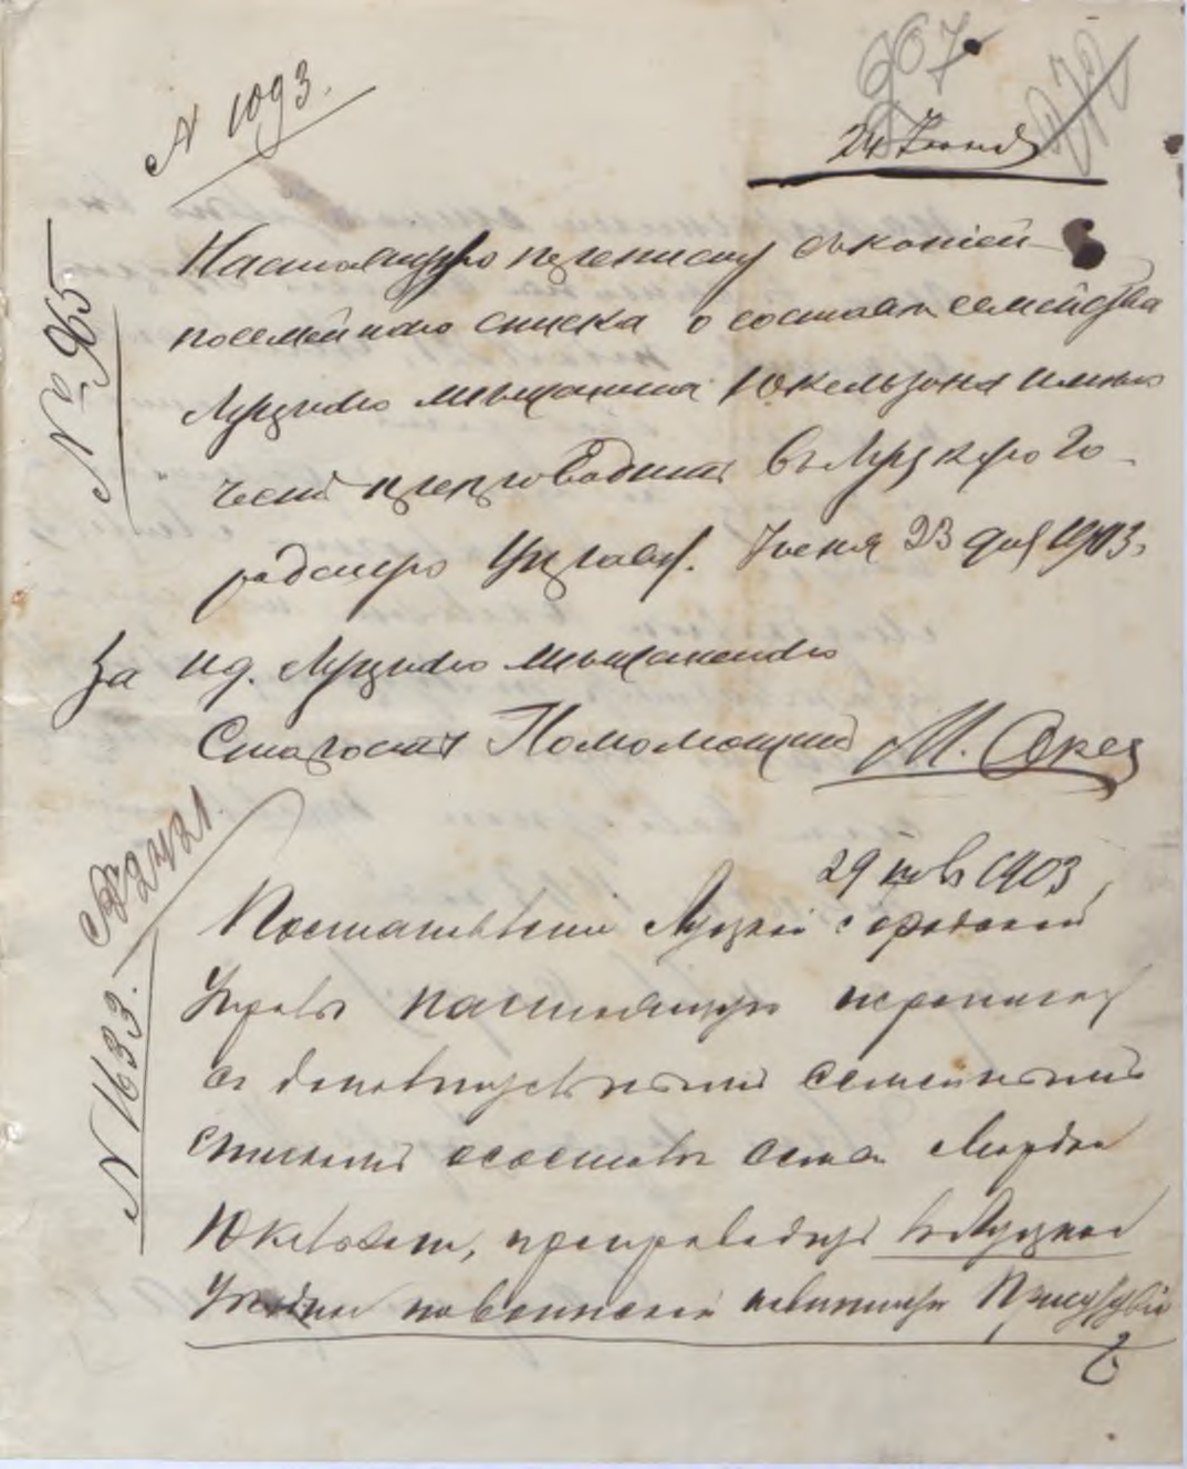 N 1093.
267
24 Іюня
№ 965
Настоящую переписку съ копіей
посемейного списка о составѣ семейства
Луцкого мѣщанина Юкельзона имѣю
честь препроводить въ Луцкую Го-
родскую Управу. Іюня 23 дня 1903.
За ид. Луцкого мѣщанского
Старосты Помощник М. Окс
2421.
29 1903
N 1633.
Постановленію Луцкой городской
Управы настоящую переписку
съ дополнительнымъ семейнымъ
спискомъ о составѣ семьи Мордка
Юкельзон, препроводить въ Луцкое
Уездное по воинской повинности Присутствіе